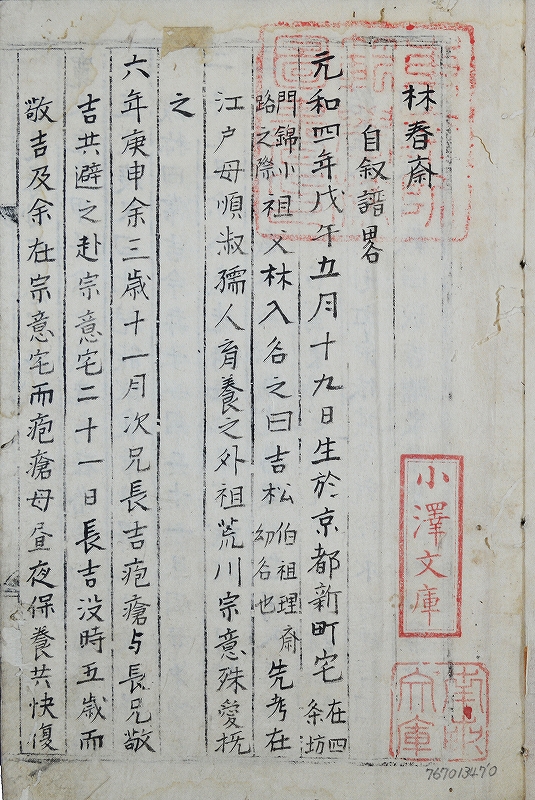 林春斎
自叙譜畧
元和四年戊午五月十九日生於京都新町宅在四条坊
門錦小路之際祖父林入名之曰吉松伯祖理斎幼名也先考在
江户母順淑孺人育養之外祖荒川宗意殊愛抚
之
六年庚申余三歳十一月次兄長吉疱瘡与長兄敬
吉共避之赴宗意宅二十一日長吉没時五歳而
敬吉及余在宗意宅而疱瘡母昼夜保養共快復
小澤文庫
文庫
767013470